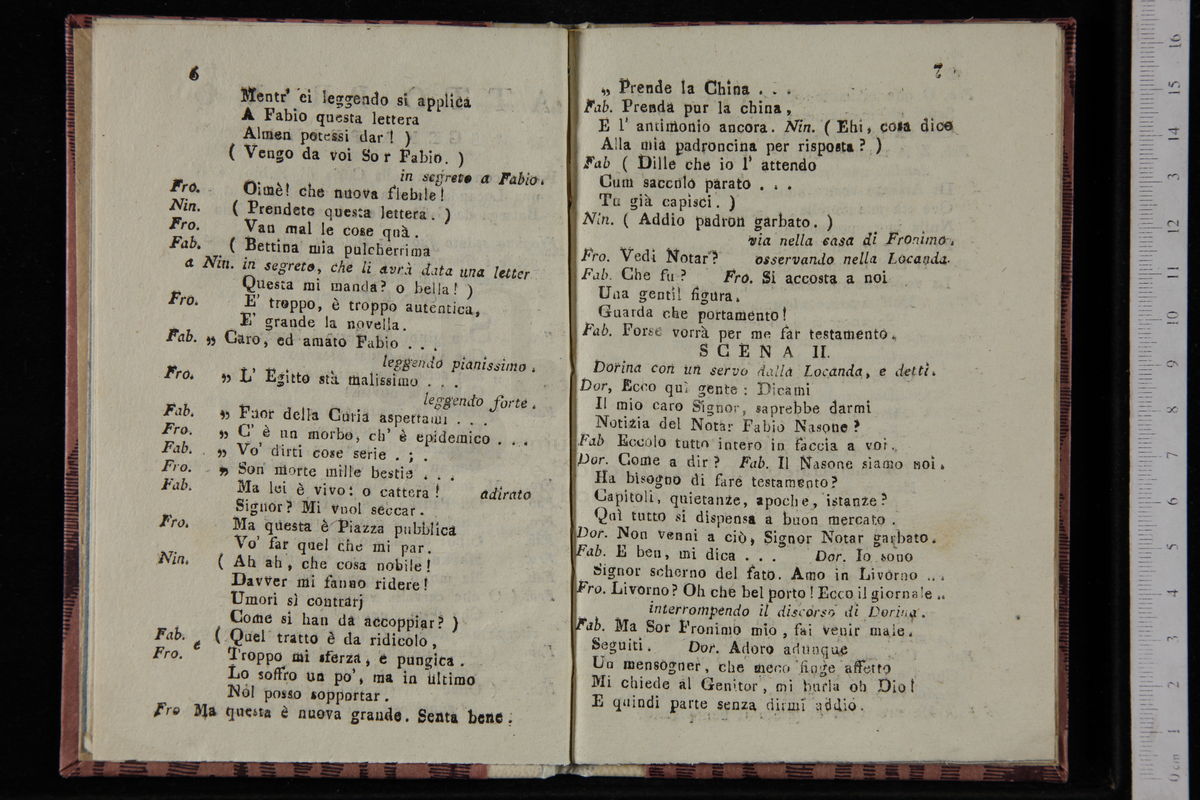 6
Mentr' ei leggendo si applica
A Fabio questa lettera
Almen potessi dar! )
( Vengo da voi Sor Fabio. )
in segreto a Fabio.
Fro. Oimè! che nuova flebile!
Nin. ( Prendete questa lettera. )
Fro. Van mal le cose quà.
Fab. ( Bettina mia pulcherrima
a Nin. in segreto, che li avrà data una letter
Questa mi manda? o bella! )
Fro. E' troppo, è troppo autentica,
E' grande la novella.
Fab. „ Caro, ed amato Fabio . . .
leggendo pianissimo.
Fro. „ L' Egitto stà malissimo . . .
leggendo forte.
Fab. „ Fuor della Curia aspettami . . .
Fro. „ C' è un morbo, ch' è epidemico . . .
Fab. „ Vo' dirti cose serie . ; .
Fro. „ Son morte mille bestie . . .
Fab. Ma lei è vivo: o cattera! adirato
Signor? Mi vuol seccar.
Fro. Ma questa è Piazza pubblica
Vo' far quel che mi par.
Nin. ( Ah ah, che cosa nobile!
Davver mi fanno ridere!
Umori sì contrarj
Come si han da accoppiar? )
Fab. e ( Quel tratto è da ridicolo,
Fro. Troppo mi sferza, e pungica.
Lo soffro un po', ma in ultimo
Nol posso sopportar.
Fro Ma questa è nuova grande. Senta bene:
7
„ Prende la China . . .
Fab. Prenda pur la china,
E l' antimonio ancora. Nin. ( Ehi, cosa dice
Alla mia padroncina per risposta? )
Fab ( Dille che io l' attendo
Cum saccolo parato . . .
Tu già capisci. )
Nin. ( Addio padron garbato. )
via nella casa di Fronimo.
Fro. Vedi Notar? osservando nella Locanda.
Fab. Che fu? Fro. Si accosta a noi
Una gentil figura.
Guarda che portamento!
Fab. Forse vorrà per me far testamento.
SCENA II.
Dorina con un servo dalla Locanda, e detti.
Dor, Ecco quì gente: Dicami
Il mio caro Signor, saprebbe darmi
Notizia del Notar Fabio Nasone?
Fab Eccolo tutto intero in faccia a voi.
Dor. Come a dir? Fab. Il Nasone siamo noi.
Ha bisogno di fare testamento?
Capitoli, quietanze, apoche, istanze?
Quì tutto si dispensa a buon mercato.
Dor. Non venni a ciò, Signor Notar garbato.
Fab. E ben, mi dica . . Dor. Io sono
Signor scherno del fato. Amo in Livorno ...
Fro. Livorno? Oh che bel porto! Ecco il giornale ..
interrompendo il discorso di Dorina.
Fab. Ma Sor Fronimo mio, fai venir male.
Seguiti. Dor. Adoro adunque
Un mensogner, che meco finge affetto
Mi chiede al Genitor, mi burla oh Dio!
E quindi parte senza dirmi addio.
0 cm 1 2 3 4 5 6 7 8 9 10 11 12 13 14 15 16